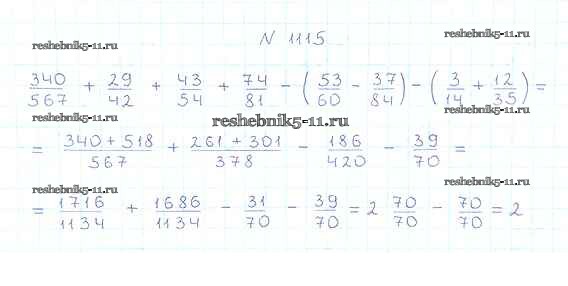 N 1115
reshebnik5-11.ru reshebnik5-11.ru
340/567 + 29/42 + 43/54 + 74/81 - (53/60 - 37/84) - (3/14 + 12/35) =
reshebnik5-11.ru reshebnik5-11.ru reshebnik5-11.ru
= 340+518/567 + 261+301/378 - 186/420 - 39/70 =
reshebnik5-11.ru reshebnik5-11.ru
= 1716/1134 + 1686/1134 - 31/70 - 39/70 = 2 70/70 - 70/70 = 2
reshebnik5-11.ru